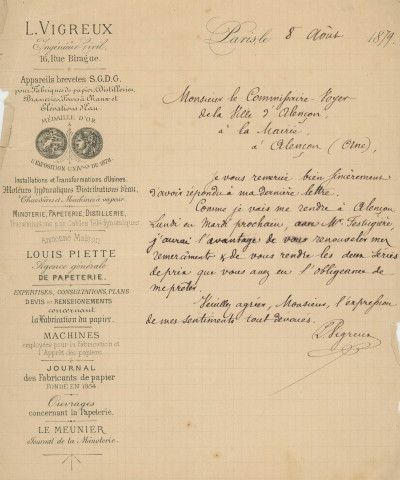 L. VIGREUX
Ingénieur Civil,
16, Rue Birague.
Appareils brevetés S.G.D.G.
pour Fabriques de papier, Distilleries,
Brasseries, Fours à Chaux et
Élévations d'eau.
MÉDAILLE D'OR
À L'EXPOSITION UNIVle DE 1878
Installations et Transformations d'Usines.
Moteurs hydrauliques Distributions d'eau.
Chaudières et Machines à vapeur.
MINOTERIE, PAPETERIE, DISTILLERIE,
Transmissions par Câbles Télédynamiques
Ancienne Maison
LOUIS PIETTE
Agence générale
DE PAPETERIE.
EXPERTISES, CONSULTATIONS, PLANS
DEVIS ET RENSEIGNEMENTS
concernant
la Fabrication du papier.
MACHINES
employées pour la Fabrication et
l'Apprêt des papiers
JOURNAL
des Fabricants de papier
FONDÉ EN 1854
Ouvrages
concernant la Papeterie.
LE MEUNIER
Journal de la Minoterie.
Paris, le 8 Août 1879.
Monsieur le Commissaire-Voyer
de la Ville d'Alençon,
à la Mairie,
à Alençon (Orne),
je vous remercie bien sincèrement
d'avoir répondu à ma dernière lettre.
Comme je vais me rendre à Alençon
Lundi ou Mardi prochain, avec Mr.
j'aurai l'avantage de vous renouveler mes
remerciements & de vous rendre les deux Séries
de prix que vous avez eu l'obligeance de
me prêter.
Veuillez agréer, Monsieur, l'expression
de mes sentiments tout dévoués.
L. Vigreux